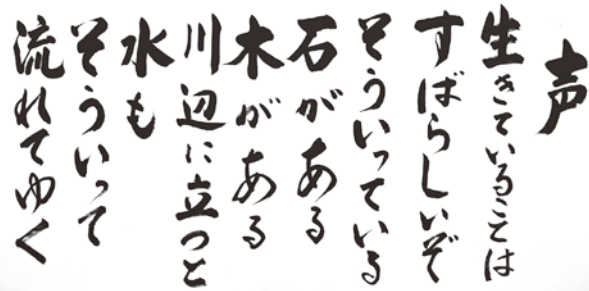 声
生きていることは
すばらしいぞ
そういっている
石がある
木がある
川辺に立つと
水も
そういって
流れてゆく